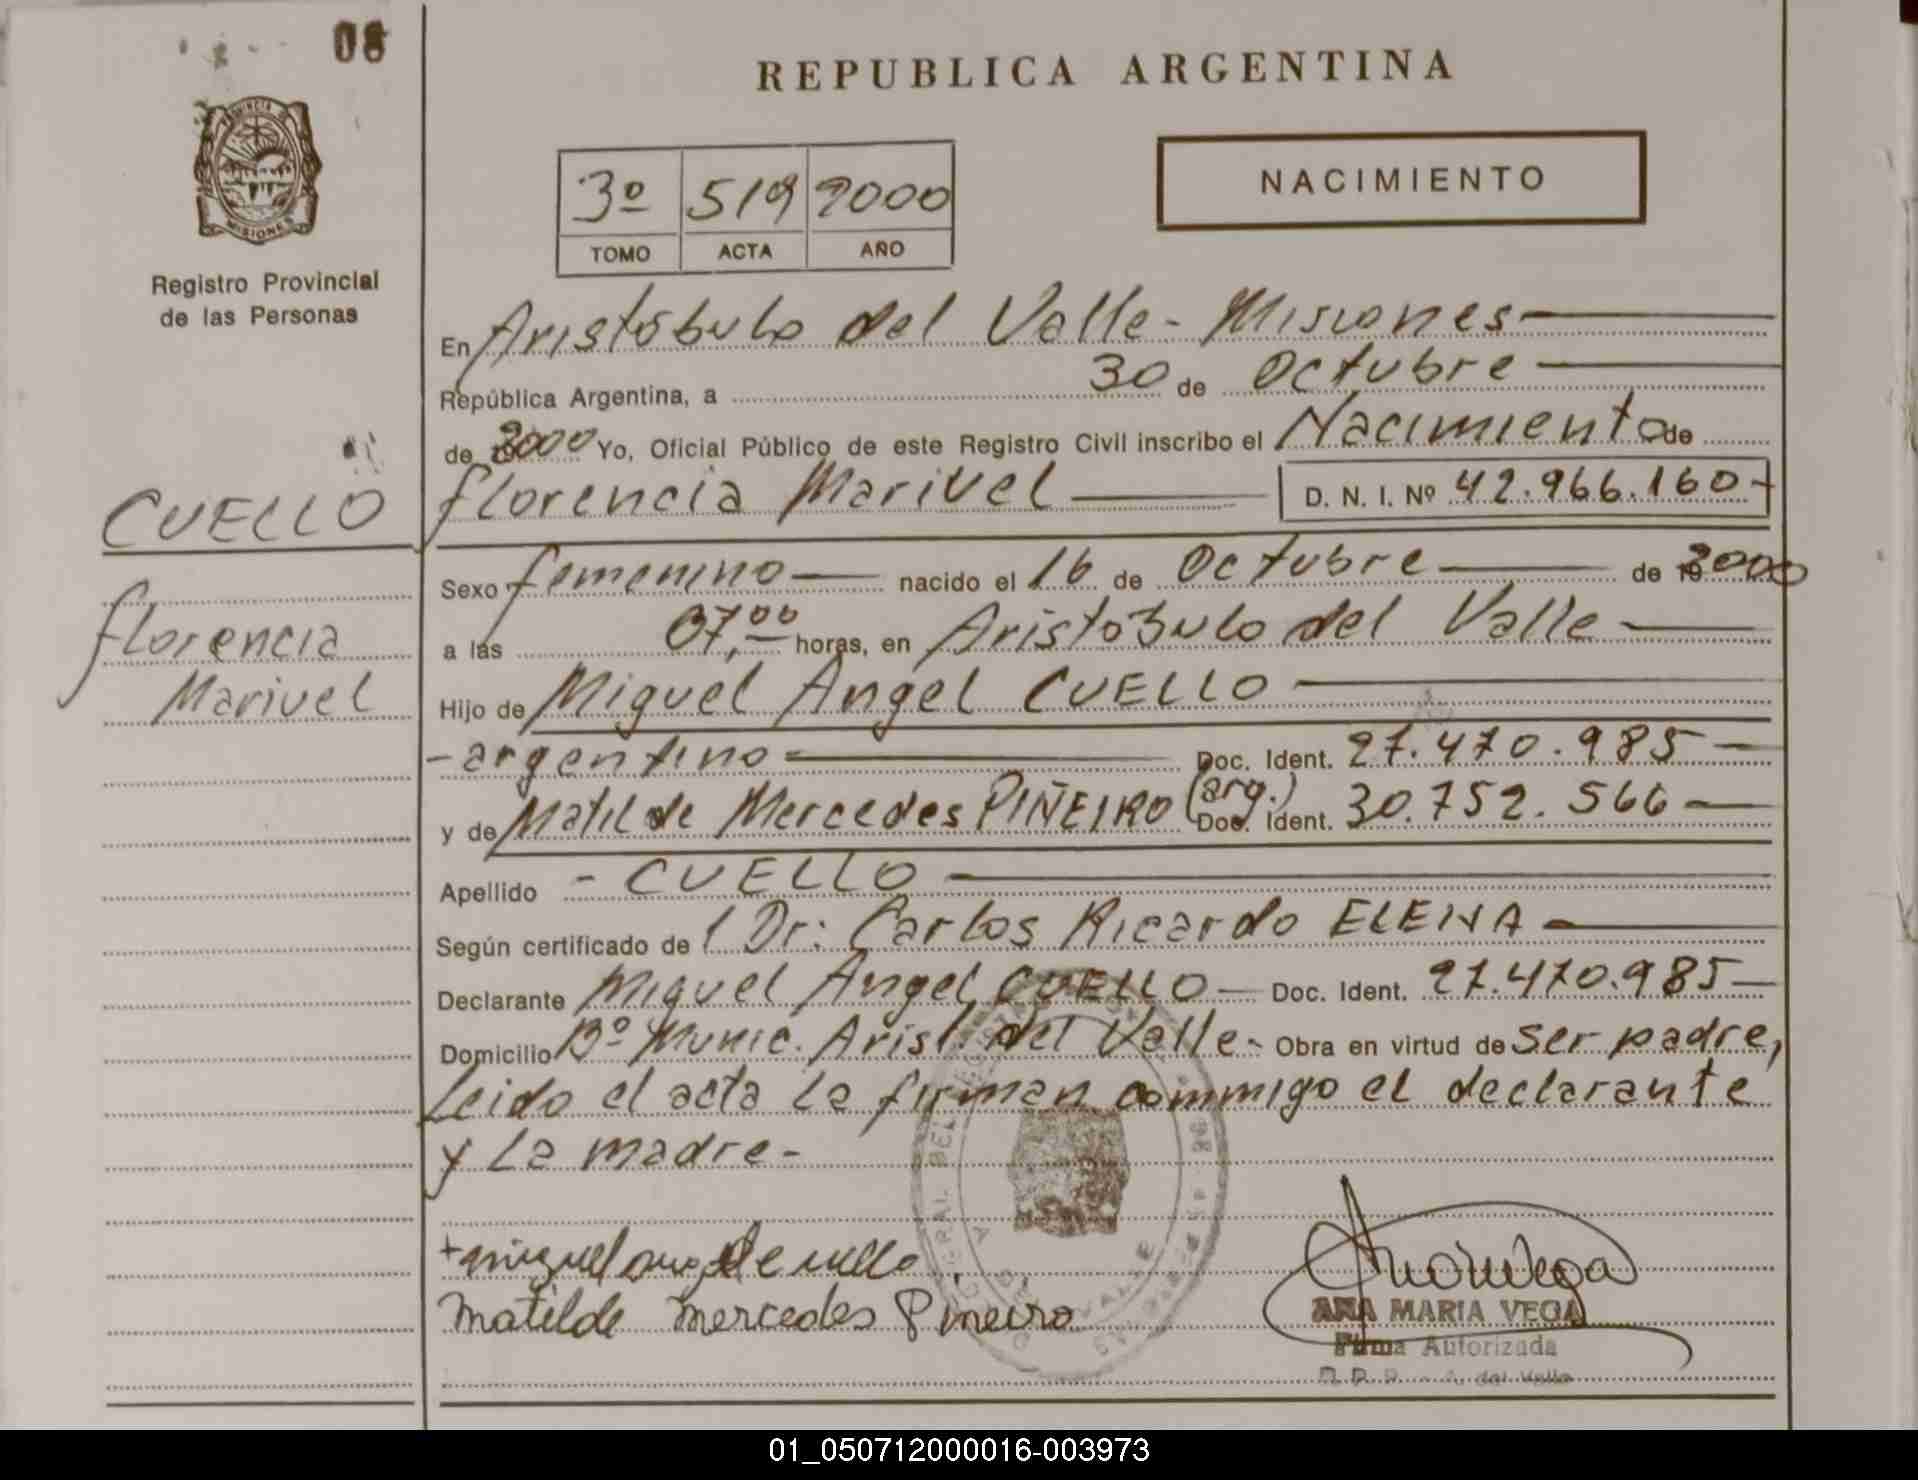 08
PROVINCIA
MISIONES
Registro Provincial
de las Personas
CUELLO
Florencia
Marivel
REPUBLICA ARGENTINA
3º 519 2000
TOMO ACTA AÑO
NACIMIENTO
En Aristóbulo del Valle - Misiones
República Argentina, a 30 de Octubre
de 2000 Yo, Oficial Público de este Registro Civil inscribo el Nacimiento de
Florencia Marivel D. N. I. Nº 42.966.160-
Sexo femenino nacido el 16 de Octubre de 2000
a las 07,00 horas, en Aristóbulo del Valle
Hijo de Miguel Angel CUELLO
- argentino - Doc. Ident. 27.470.985
y de Matilde Mercedes PIÑEIRO (arg.) Doc. Ident. 30.752.566
Apellido - CUELLO
Según certificado de Dr: Carlos Ricardo ELENA
Declarante Miguel Angel CUELLO - Doc. Ident. 27.470.985
Domicilio Bº Munic. Arist. del Valle - Obra en virtud de ser padre,
Leido el acta la firman commigo el declarante
y la madre -
+ miguel angel cuello
Matilde Mercedes Pineiro
ANA MARIA VEGA
Firma Autorizada
R. P. P. - A. del Valle
01_050712000016-003973